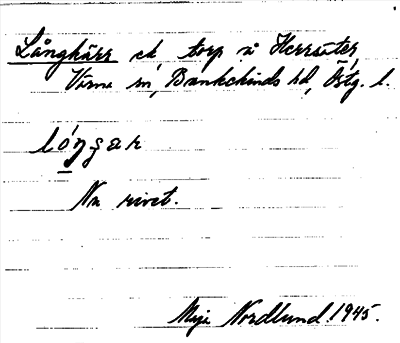 Långkärr ek torp u Herrsäter,
Värna sn, Bankekinds hd, Östg. l.
lóŋşar
Nu rivet.
Maja Nordlund. 1945.